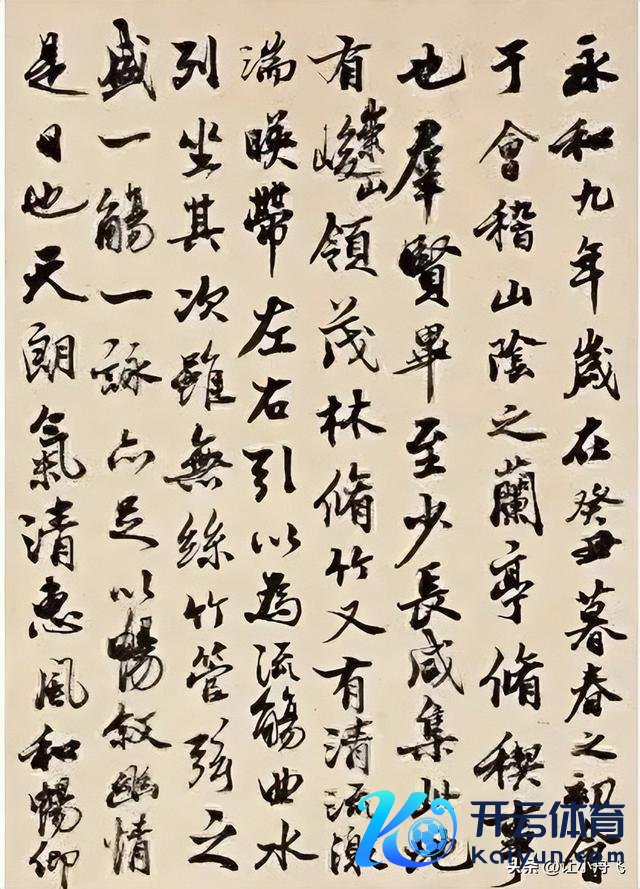 永和九年歲在癸丑暮春之初會
于會稽山陰之蘭亭脩稧事
也羣賢畢至少長咸集此地
有崇山峻領茂林脩竹又有清流激
湍暎帶左右引以為流觴曲水
列坐其次雖無絲竹管弦之
盛一觴一詠亦足以暢敘幽情
是日也天朗氣清惠風和暢仰
开云体育
Kaiyun.com
头条 @让小舟飞